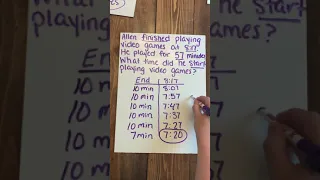 Allen finished playing
video games at 8:17.
He played for 57 minutes.
What time did he start
playing video games?
End 8:17
10 min 8:07
10 min 7:57
10 min 7:47
10 min 7:37
10 min 7:27
7 min 7:20